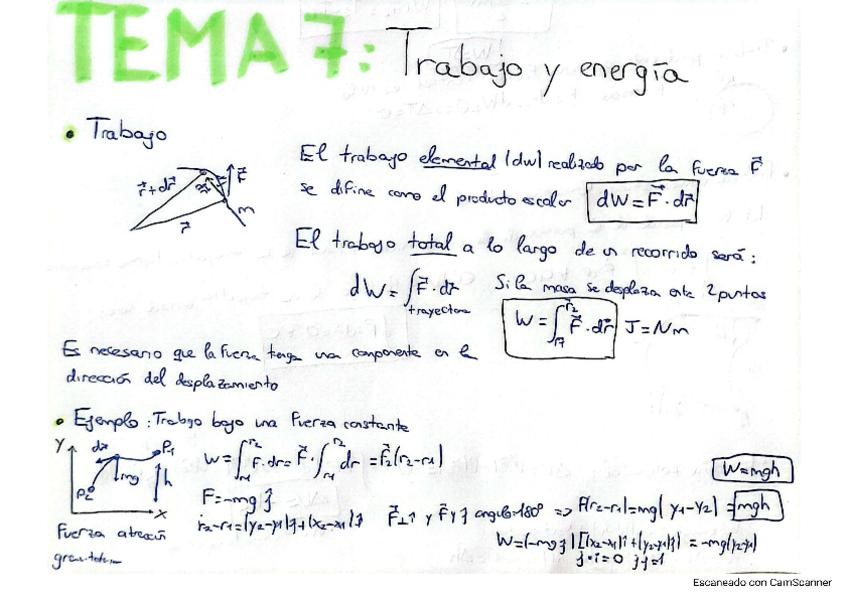 TEMA 7: Trabajo y energía
• Trabajo
r⃗+dr⃗ dr⃗ F⃗ m r⃗
El trabajo elemental (dW) realizado por la fuerza F⃗
se difine como el producto escalar dW = F⃗ · dr⃗
El trabajo total a lo largo de un recorrido será:
dW = ∫ F⃗ · dr⃗ trayectoria
Si la masa se desplaza ente 2 puntos
W = ∫_{r1}^{r2} F⃗ · dr⃗ J = Nm
Es necesario que la fuerza tenga una componente en la
dirección del desplazamiento
• Ejemplo: Trabajo bajo una fuerza constante
Y dr P1 mg h P2 X
Fuerza atracción
W = ∫_{r1}^{r2} F · dr = F⃗ · ∫_{r1}^{r2} dr = F⃗2 (r2-r1)
F = -mg j
r2-r1 = (y2-y1)j + (x2-x1)j
F⃗⊥↑ y F⃗ y j angulo 180° => F(r2-r1) = mg(y1-y2) = mgh
W=mgh
W = (-mg j) [(x2-x1)i + (y2-y1)j] = -mg(y2-y1)
j·i=0 j·j=1
Escaneado con CamScanner